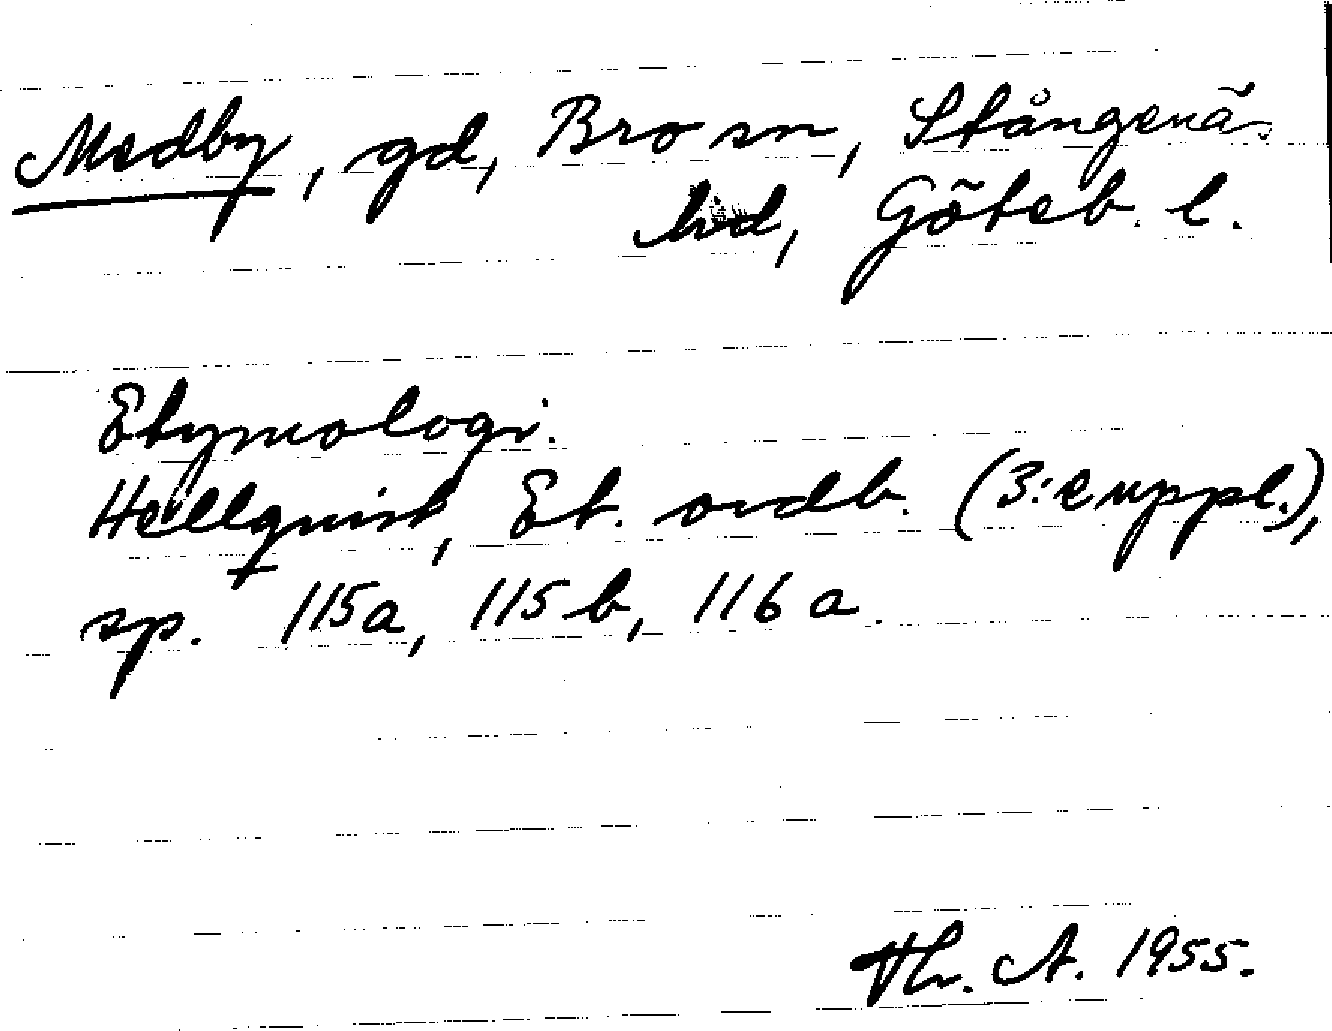 Medby, gd, Bro sn, Stångenäs
hd, Göteb. l.
Etymologi.
Hellquist, Et. ordb. (3:e uppl.),
sp. 115a, 115b, 116a.
Th. A. 1955.